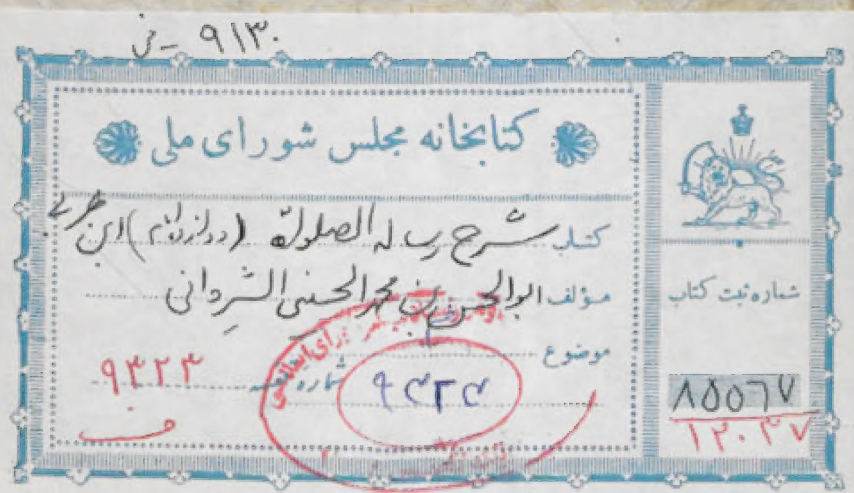 ۹۱۳۰ - ف
کتابخانه مجلس شورای ملی
کتاب شرح رساله الصلوة (دوازده امام) ابن عربی
مؤلف ابوالحسن بن محمد الحسنی الشروانی
موضوع
شماره قفسه ۹۳۲۳
۹۳۲۳
ف
شماره ثبت کتاب
۸۵۵۶۷
۱۲۰۳۷